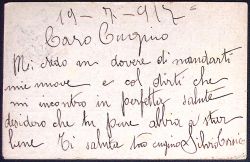 19-7-917
Caro Cugino
Mi credo in dovere di mandarti
mie nuove e col dirti che
mi incontro in perfetta salute
desidero che tu pure abbia a star
bene Ti saluta tuo cugino Silvio